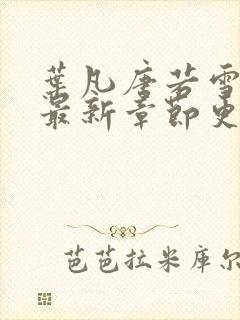 葉凡唐若雪
最新章節更
芭芭拉米库尔